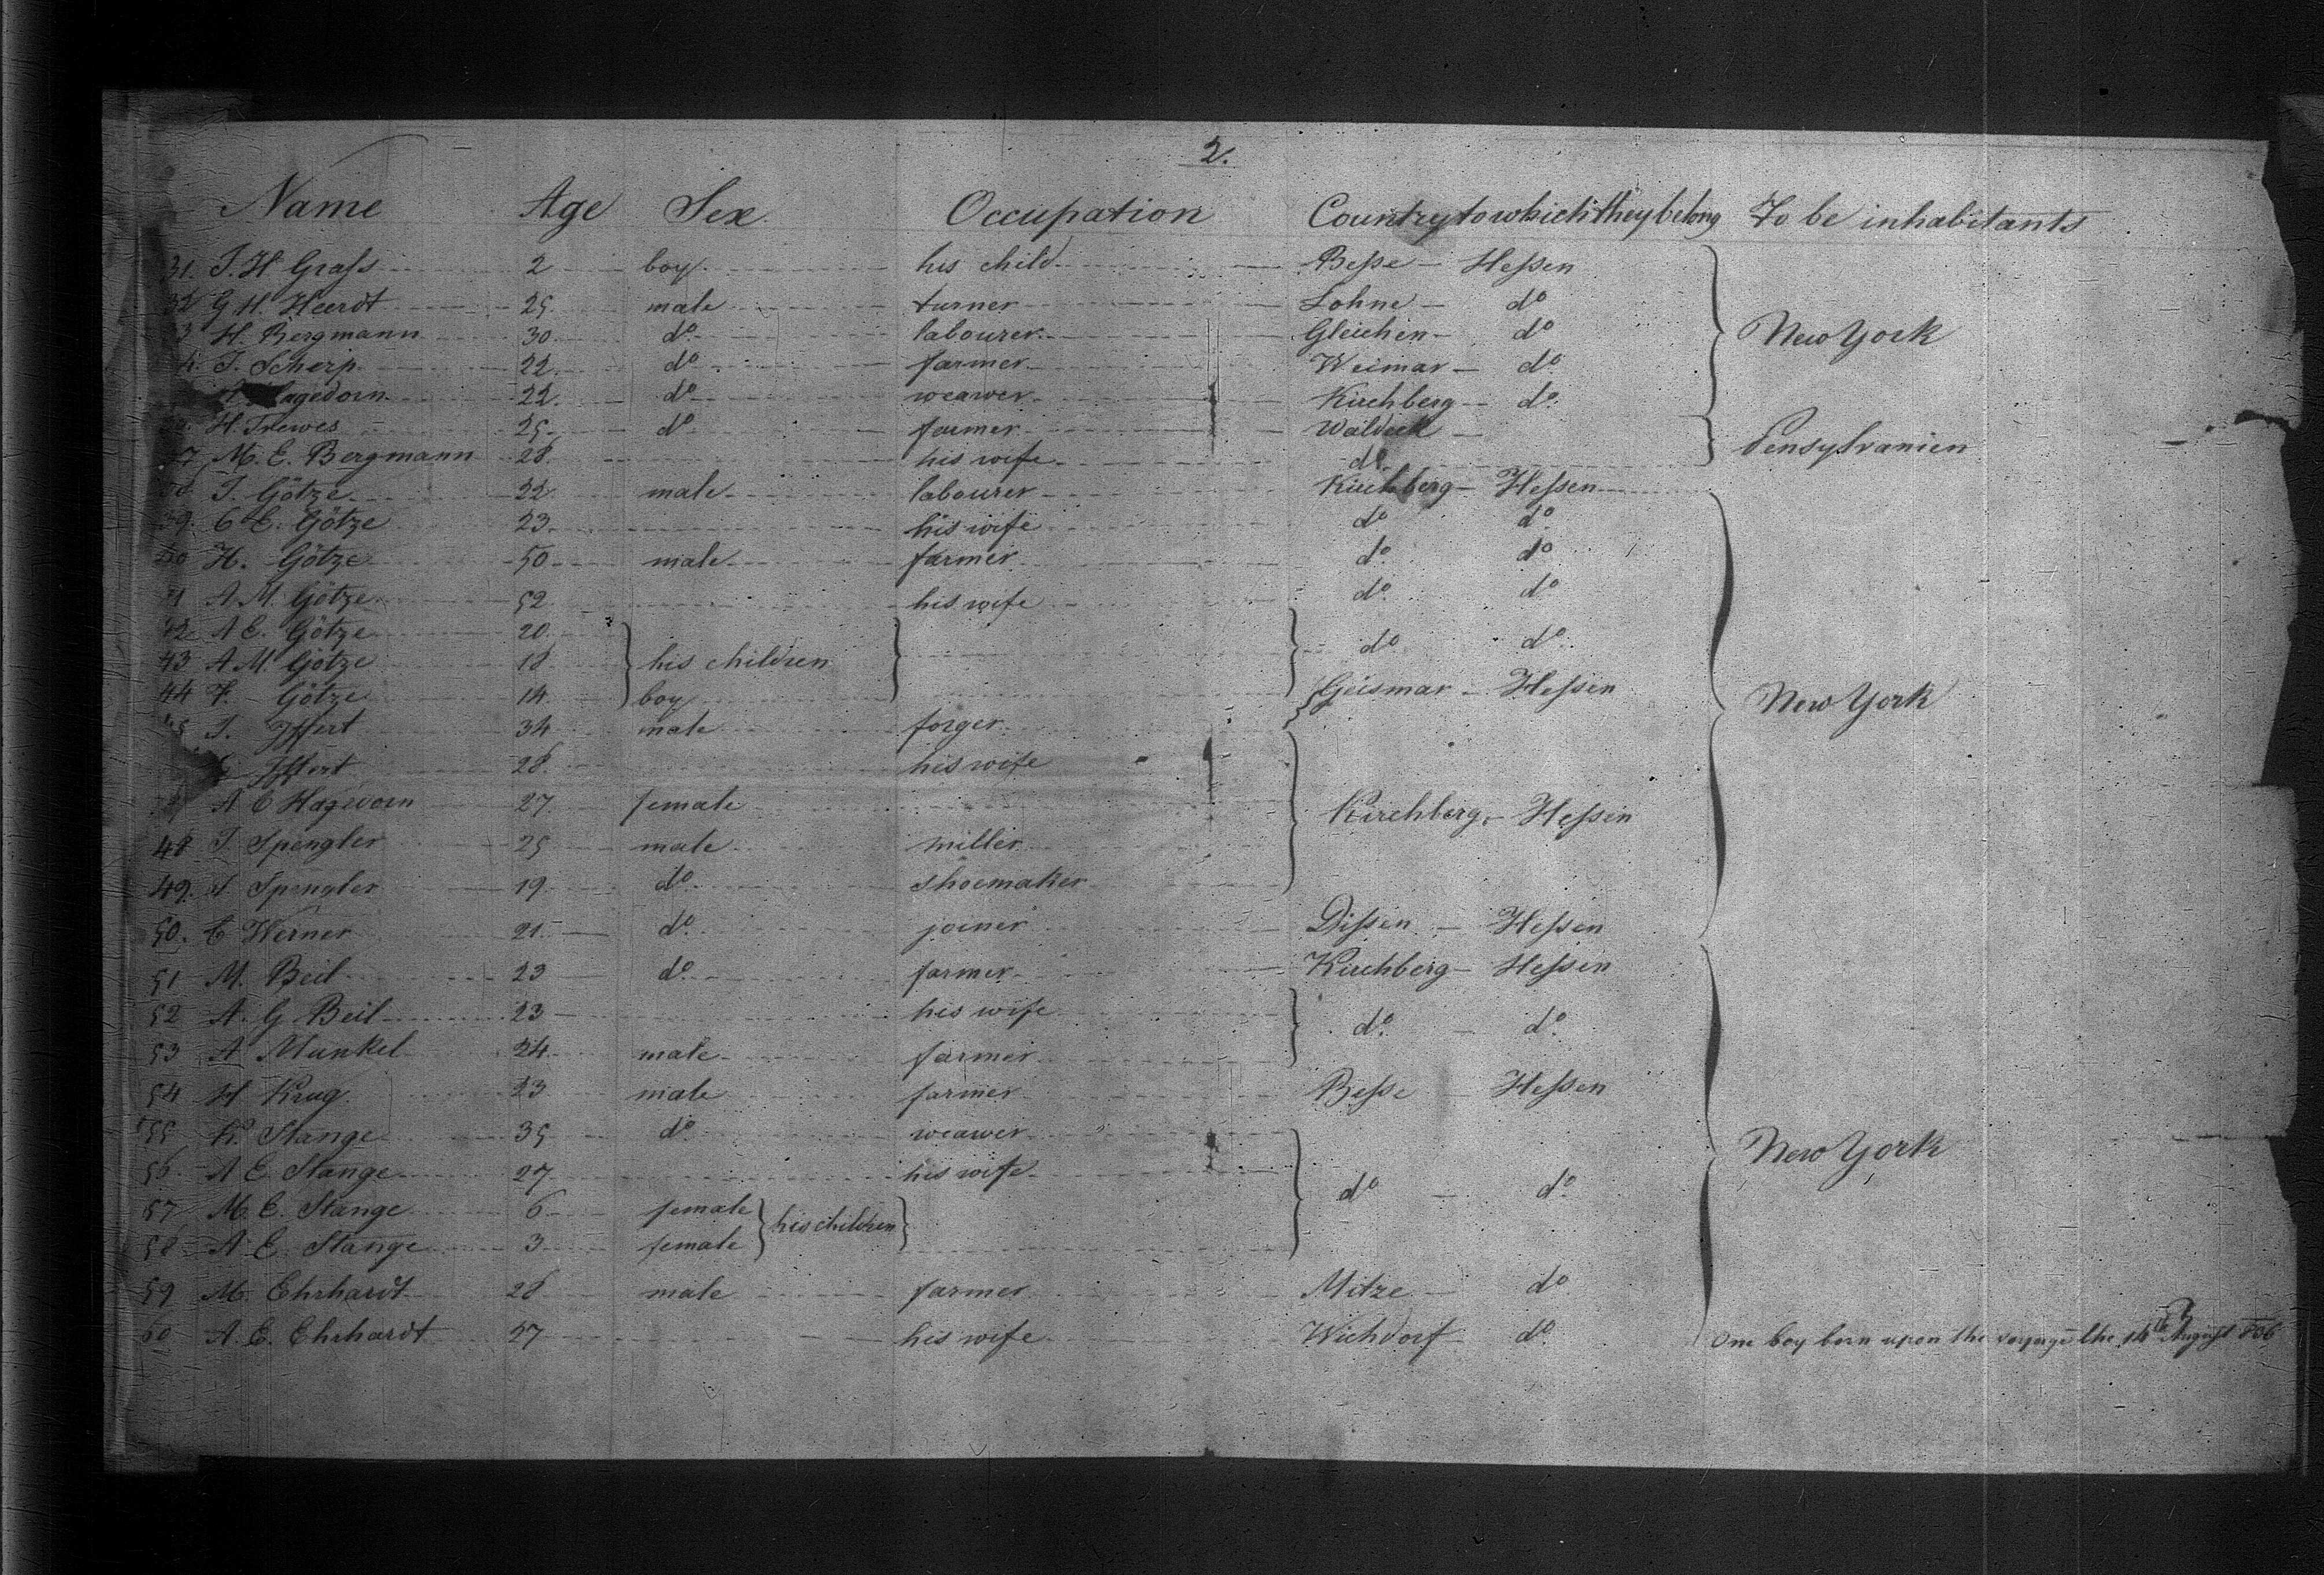 2.
Name Age Sex Occupation Country to which they belong To be inhabitants
31. J. H Grafs 2 boy his child Beſse – Heſsen
32 G H. Heerdt 25 male turner Lohne – do
3 H. Bergmann 30 do labourer Gleichen – do New York
4. J. Scherp 22 do farmer Weimar – do
agedorn 22. do weawer Kirchberg – do
H. Trewes 25 do farmer Waldeck –
37 M. E. Bergmann 28 his wife do Pensylvanien
38 J. Götze 22 male labourer Kirchberg – Heſsen
39. C E. Götze 23 his wife do do
40 H. Götze 50 male farmer do do
41 A M. Götze 52 his wife do do
42 A E. Götze 20
43 A M. Götze 18 his children do do
44 F. Götze 14 boy Geismar – Heſsen New York
45 J. Iffert 34 male forger
Iffert 28 his wife
47 A E Hagedorn 27 female Kirchberg – Heſsen
48 J Spengler 25 male miller
49. J Spengler 19 do shoemaker
50. C Werner 21 do joiner Diſsen – Heſsen
51 M. Beil 23 do farmer Kirchberg – Heſsen
52 A. G Beil 23 his wife do – do
53 A Munkel 24 male farmer
54 H Krug 23 male farmer Beſse – Heſsen
55 K. Stange 35 do weawer New York
56 A E Stange 27 his wife do – do
57 M. E. Stange 6 female his children
58 A E. Stange 3 female
59 M. Ehrhardt 28 male farmer Mitze – do
60 A. E. Ehrhardt 27 his wife Wichdorf – do One boy born upon the voyage the 14th August 1836